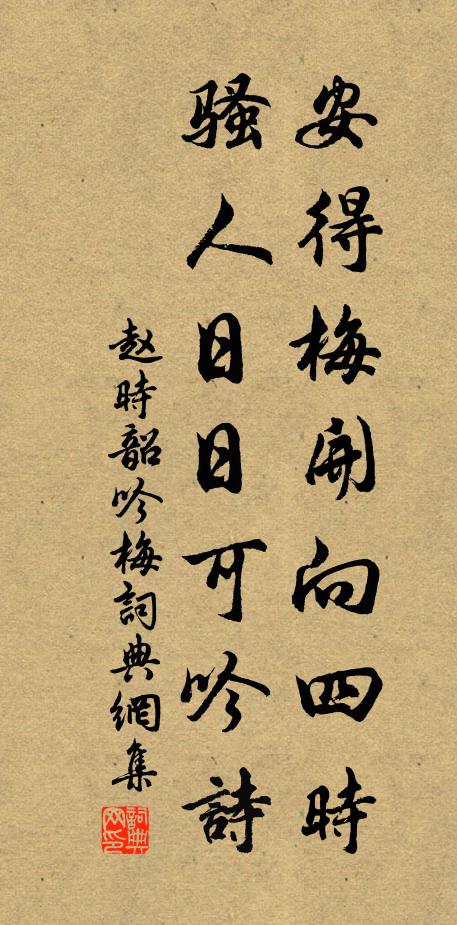 安得梅開向四時
騷人日日可吟詩
赵時韶吟梅詞典網集
詞典网印